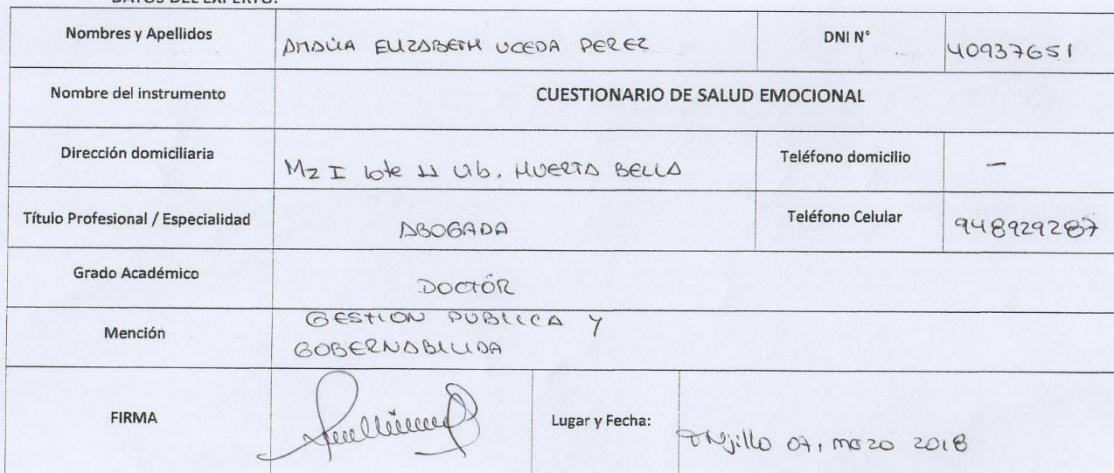 DATOS DEL EXPERTO:
Nombres y Apellidos AMALIA ELIZABETH UCEDA PEREZ DNI N° 40937651
Nombre del instrumento CUESTIONARIO DE SALUD EMOCIONAL
Dirección domiciliaria Mz I lote 11 Ub. HUERTA BELLA Teléfono domicilio —
Título Profesional / Especialidad ABOGADA Teléfono Celular 948929287
Grado Académico DOCTÓR
Mención GESTION PUBLICA Y
GOBERNABILIDA
FIRMA Lugar y Fecha: Trujillo 07, mozo 2018